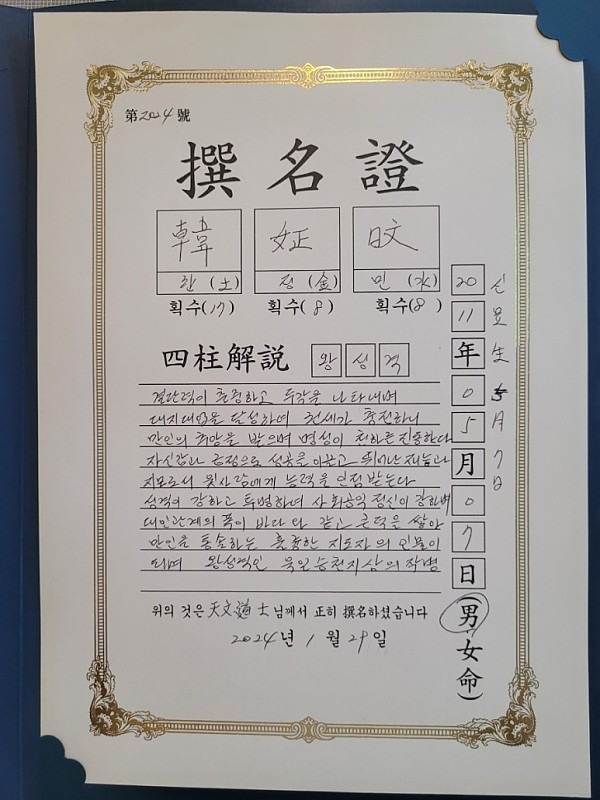 第2024號
撰名證
韓 姃 旼
한 (土) 정 (金) 민 (水)
획수(17) 획수(8) 획수(8)
20 11 年 05 月 07 日 (男女命)
신묘생 5月 7日
四柱解説 왕 성 격
결단력이 출중하고 두각을 나타내며
대지대업을 달성하여 천세가 충전하니
만인의 추앙을 받으며 명성이 천하를 진동한다
자신감과 긍정으로 성공을 이끈고 뛰어난 재능과
지모로서 윗사람에게 능력을 인정받는다
성격이 강하고 특별하여 사회공익 정신이 강하며
대인관계의 폭이 바다와 같고 큰덕을 쌓아
만인을 통솔하는 훌륭한 지도자의 인물이
되며 왕성격인 욱일승천지상의 작명
위의 것은 天文道士님께서 正히 撰名하셨습니다
2024년 1월 29일